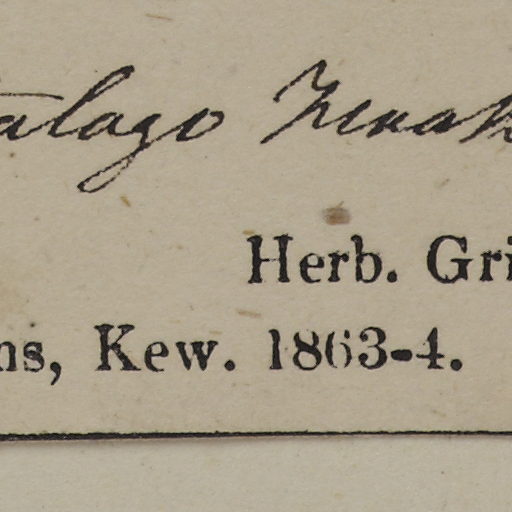 alago Tenas
Herb. Gri
ns, Kew. 1863-4.